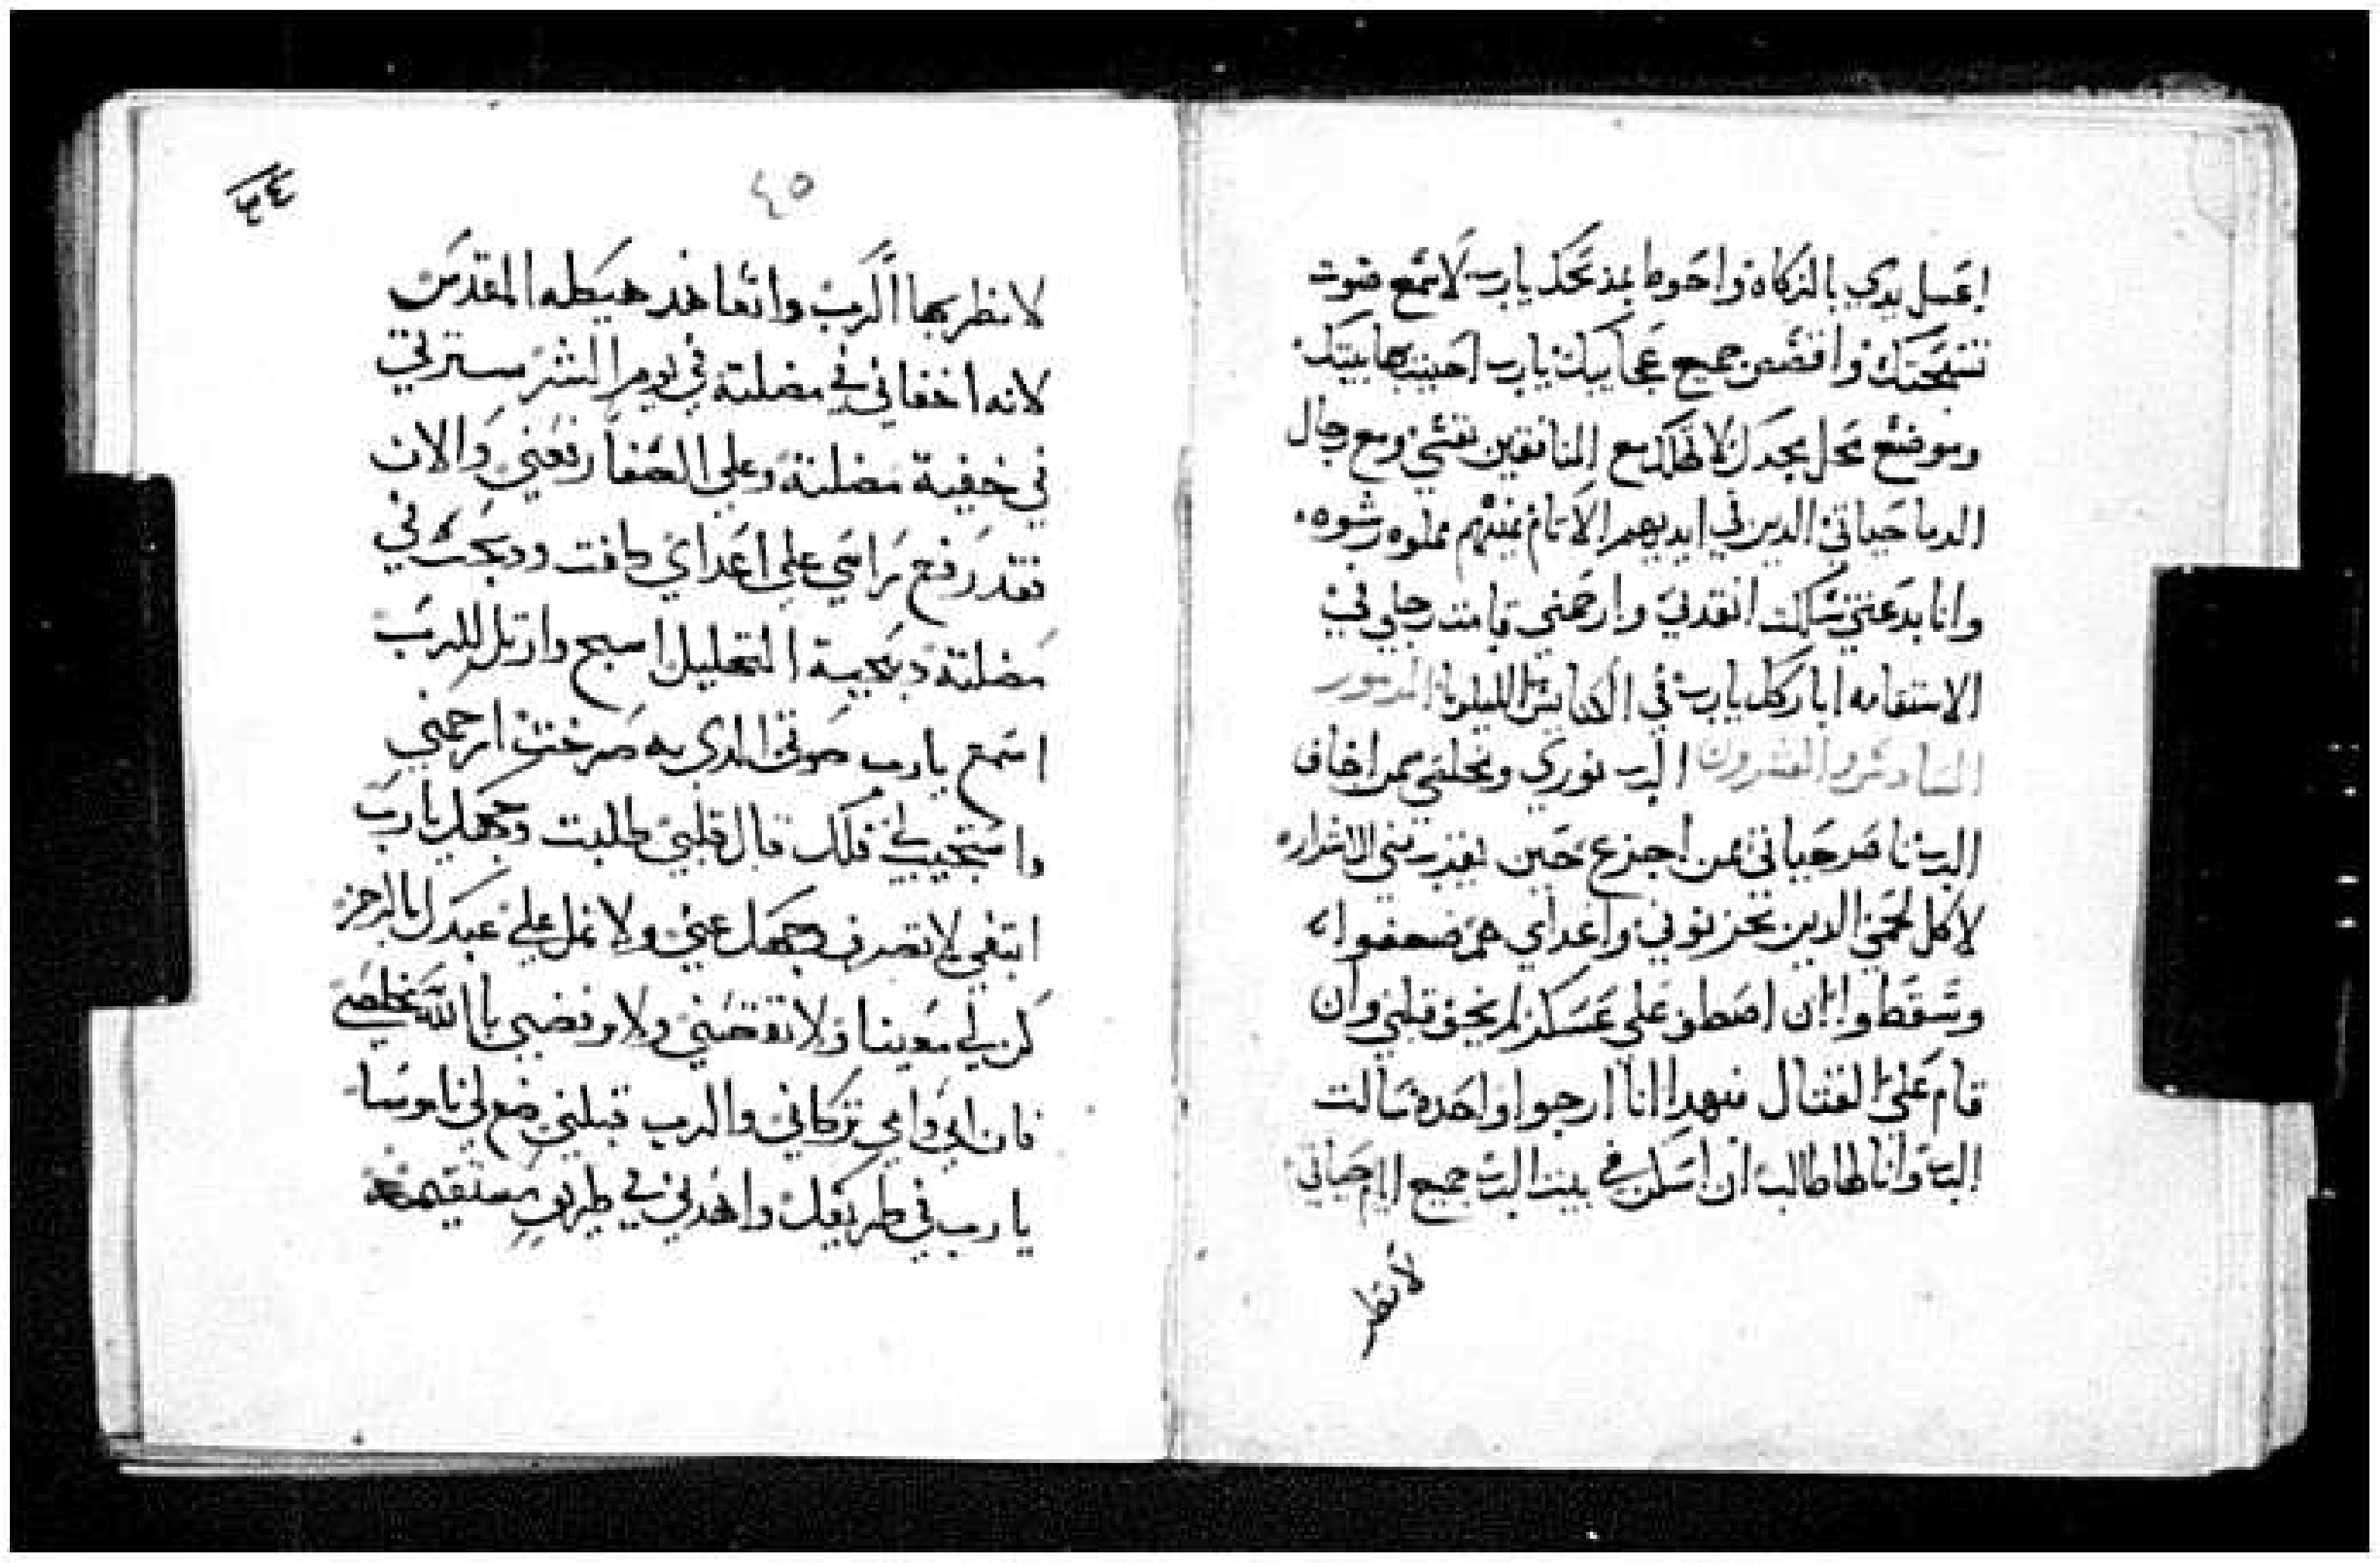 اغسل يدي بالزكاه واحوط بمذبحك يارب لاسمع صوت
تسبحتك واقصص جميع عجايبك يارب احببت بها بيتك
وموضع محل مجدك لا تهلك مع المنافقين نفسي ومع رجال
الدما حياتي الدين في ايديهم الاتام يمينهم مملوه رشوه
وانا بدعتي سلكت انقدني وارحمني قامت رجلي في
الاستقامه اباركك يارب في الكنايس الليلويا المزمور
السادس والعشرون الرب نوري ومخلصي ممن اخاف
الرب ناصر حياتي ممن اجزع حين يقترب مني الاشرار
لاكل لحمي الدين يحزنوني واعداي هم ضعفوا
وسقطوا ان اصطف علي عسكر لم يخف قلبي وان
قام علي القتال فبهدا انا ارجوا واحده سالت
الرب وانا لها طالب ان اسكن في بيت الرب جميع ايام حياتي
لانظر
٤٥
٤٤
لانظر بها الرب واتعاهد هيكله المقدس
لانه اخفاني في مضلته في يوم الشر سترني
في خفية مضلته وعلي الصفا رفعني والان
فقد رفع راسي علي اعداي طافت ودبحت في
مضلته دبيحية التهليل اسبح وارتل للرب
اسمع يارب صوتي الدي به صرخت ارحمني
واستجيب لي فلك قال قلبي طلبت وجهك يارب
ابتغي لا تصرف وجهك عني ولا تمل علي عبدك بالرجز
كن لي معينا ولا تقصني ولا ترفضني ياالله مخلصي
فان ابي وامي تركاني والرب قبلني ضع لي ناموسا
يارب في طريقك واهدني في طريق مستقيمة